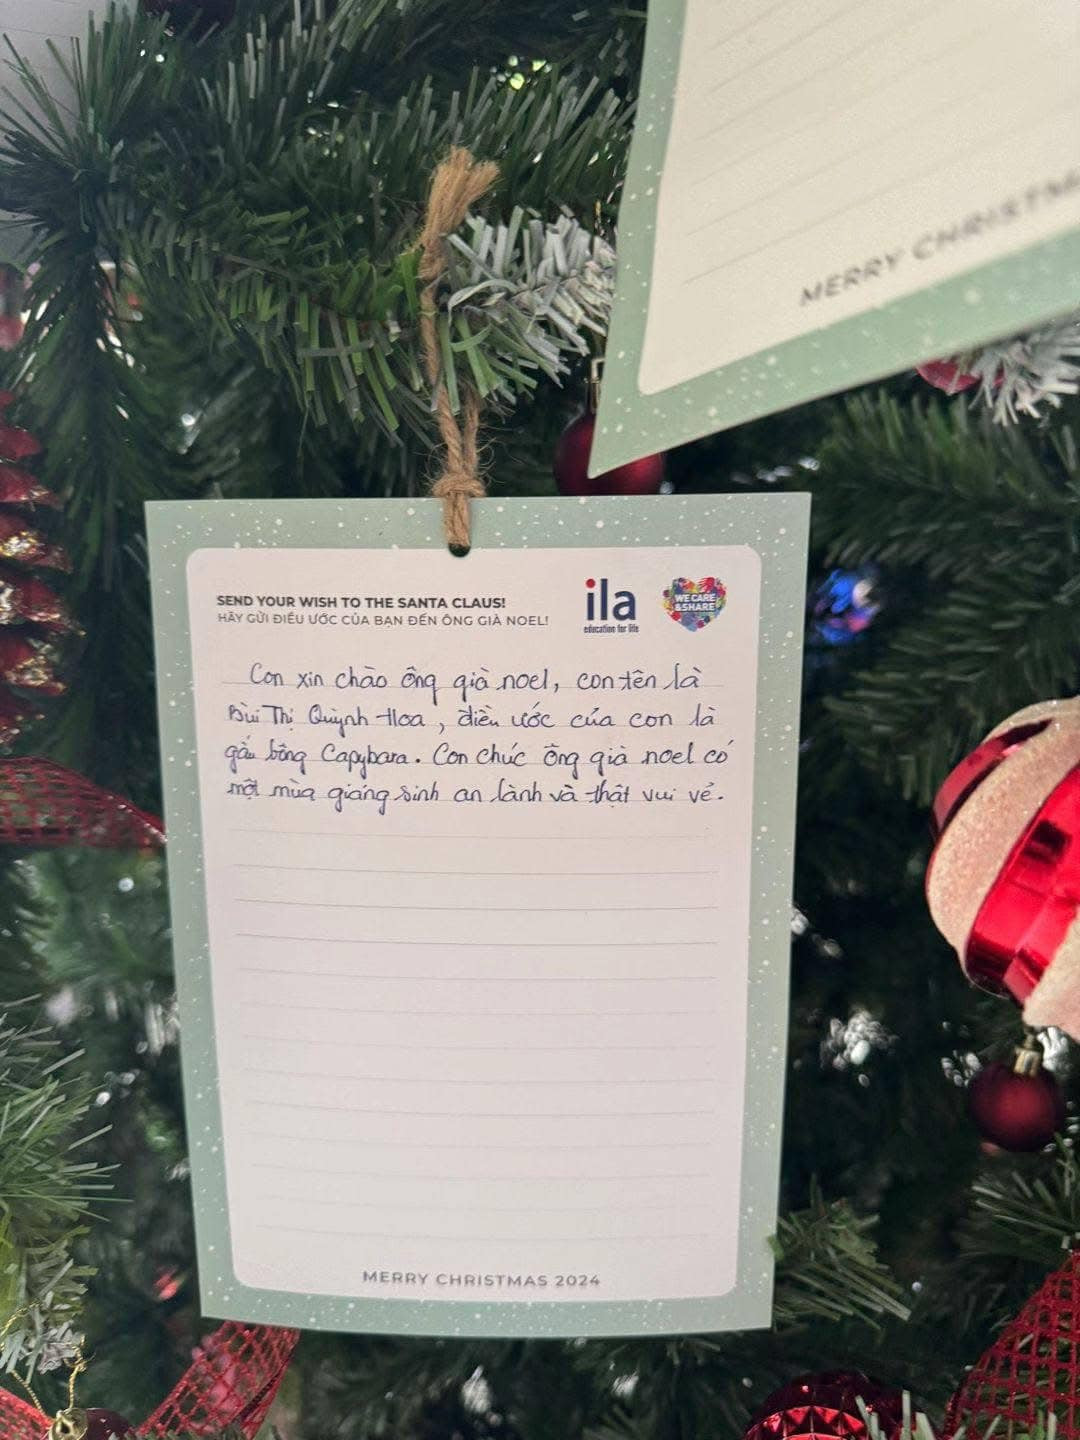 MERRY CHRISTMA
SEND YOUR WISH TO THE SANTA CLAUS!
HÃY GỬI ĐIỀU ƯỚC CỦA BẠN ĐẾN ÔNG GIÀ NOEL!
ila
education for life
WE CARE
&SHARE
Con xin chào ông già noel, con tên là
Bùi Thị Quỳnh Hoa, điều ước của con là
gấu bông Capybara. Con chúc ông già noel có
một mùa giáng sinh an lành và thật vui vẻ.
MERRY CHRISTMAS 2024